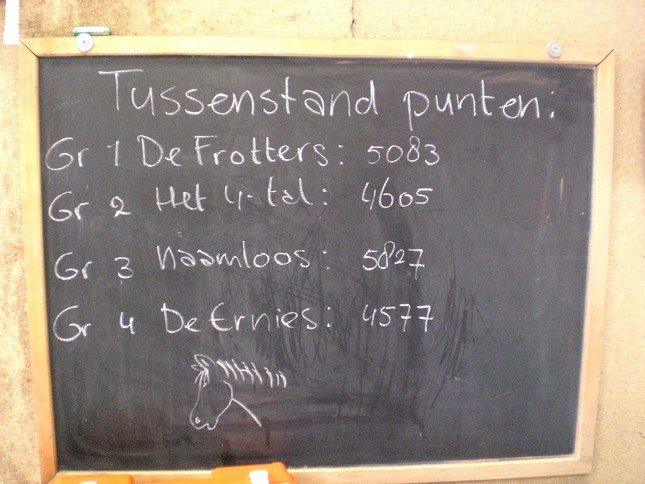 Tussenstand punten:
Gr 1 De Frotters: 5083
Gr 2 Het 4-tal: 4605
Gr 3 Naamloos: 5827
Gr 4 De Ernies: 4577